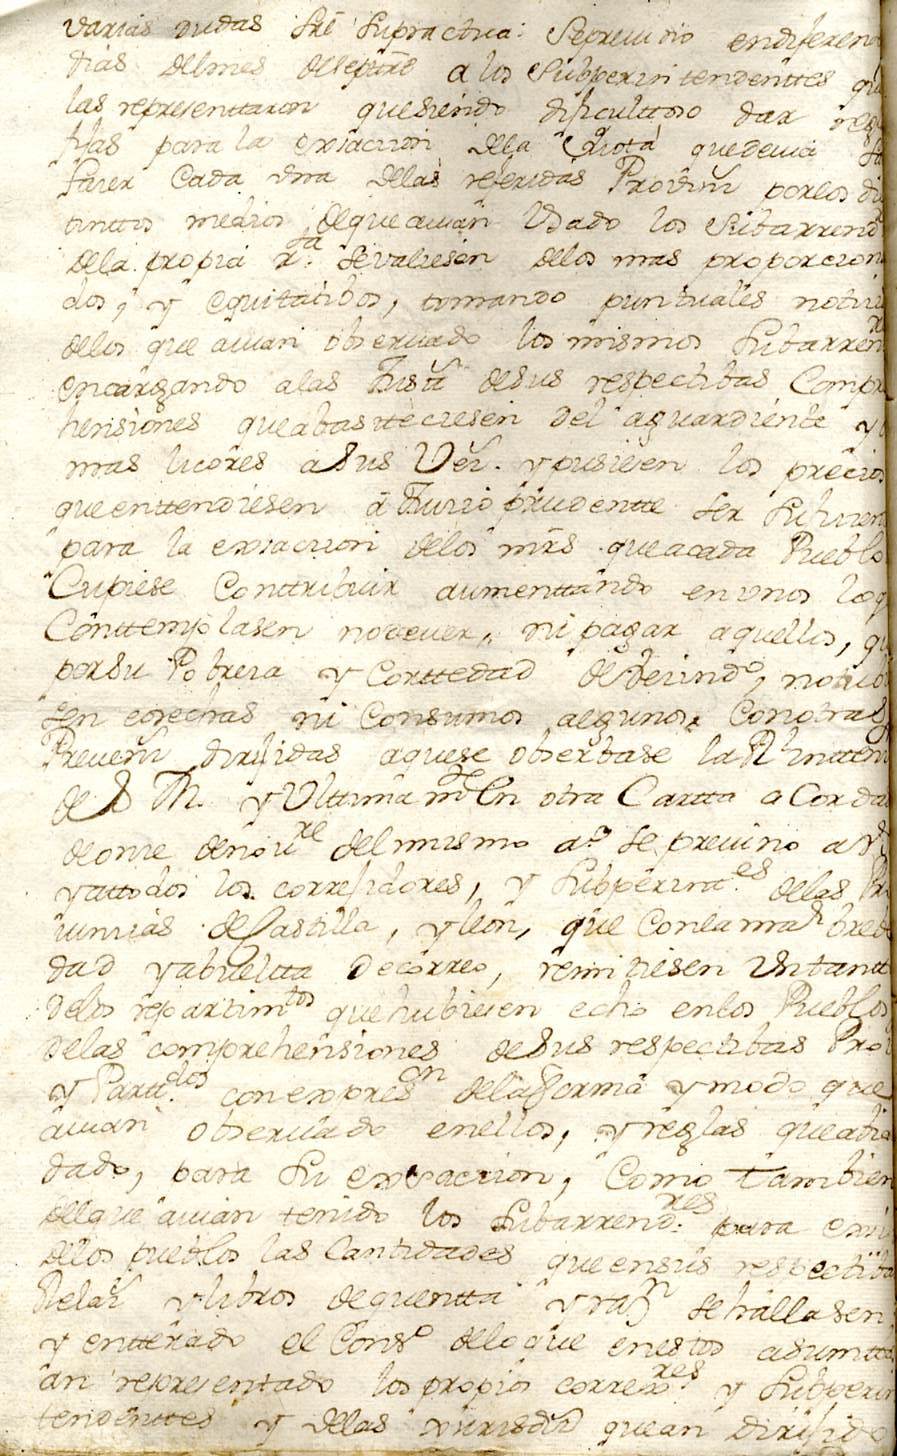 varias dudas sre su practica: Se previno en diferen
dias del mes de septre a los Subperintendenttes qu
las representtaron que siendo dificulttoso dar reg
blas para la exsaccion de la Quota que devia sa
tisfacer Cada vna de las referidas Provins por los di
tinttos medios de que avian Usado los Subarrend
de la propia rta se valiesen de los mas proporciona
dos, y equitatibos, tomando puntuales notici
de los que avian observado los mismos subarren
encargando a las Justs de sus respectibas Compre
hensiones que abastteciesen del aguardiente y d
mas licores a sus Vezs. y pusiesen los precios
que enttendiesen a Juicio prudentte ser suficien
para la exsaccion de los mrs que a cada Pueblo
Cupiese Conttribuir aumenttando en vnos lo q
Conttemplasen no dever, ni pagar aquellos, qu
por su Pobreza y Corttedad de Vezindo, no tubie
sen cosechas ni Consumos algunos, Con otras
Prevens dirijidas a que se obserbase la Rl Intten
de S. M. y Ulttimamte En otra Cartta a Cordada
de onze de novre del mismo ao se previno a VS
y a ttodos los correjidores, y Subperintes de las Pro
vincias de Castilla, y leon, que Con la mas breb
dad y a buelta de correo, remitiesen Un tant
de los repartimtos que hubiesen echo en los Pueblos
de las comprehensiones de sus respectibas Prov
y Parttdos con expreson de la forma y modo que
avian observado en ellos, y reglas que avia
dado, para su exsaccion, Como Tambien
del que avian tenido los Subarrendres para exsi
de los pueblos las Cantidades que en sus respectiba
Relazs y libros de quentta y razn se hallasen
y entterado el Conso de lo que en estos asumtto
an representado los propios correxres y Subperin
tendenttes y de las dilixs que an dirijido